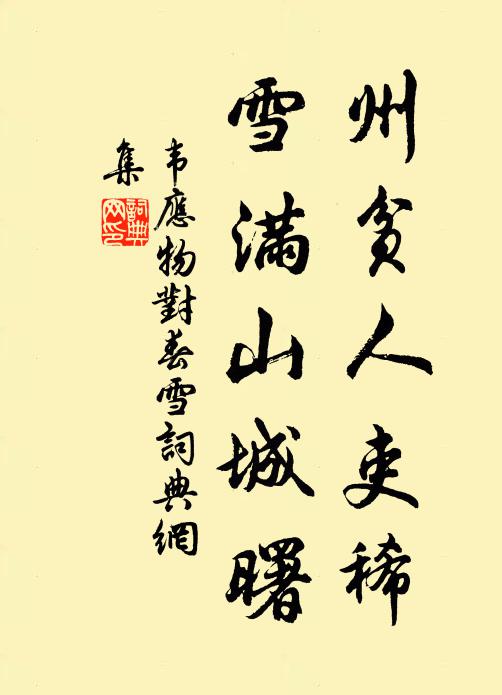 州贫人吏稀
雪满山城曙
韦應物對春雪詞典網
集
詞典
网印